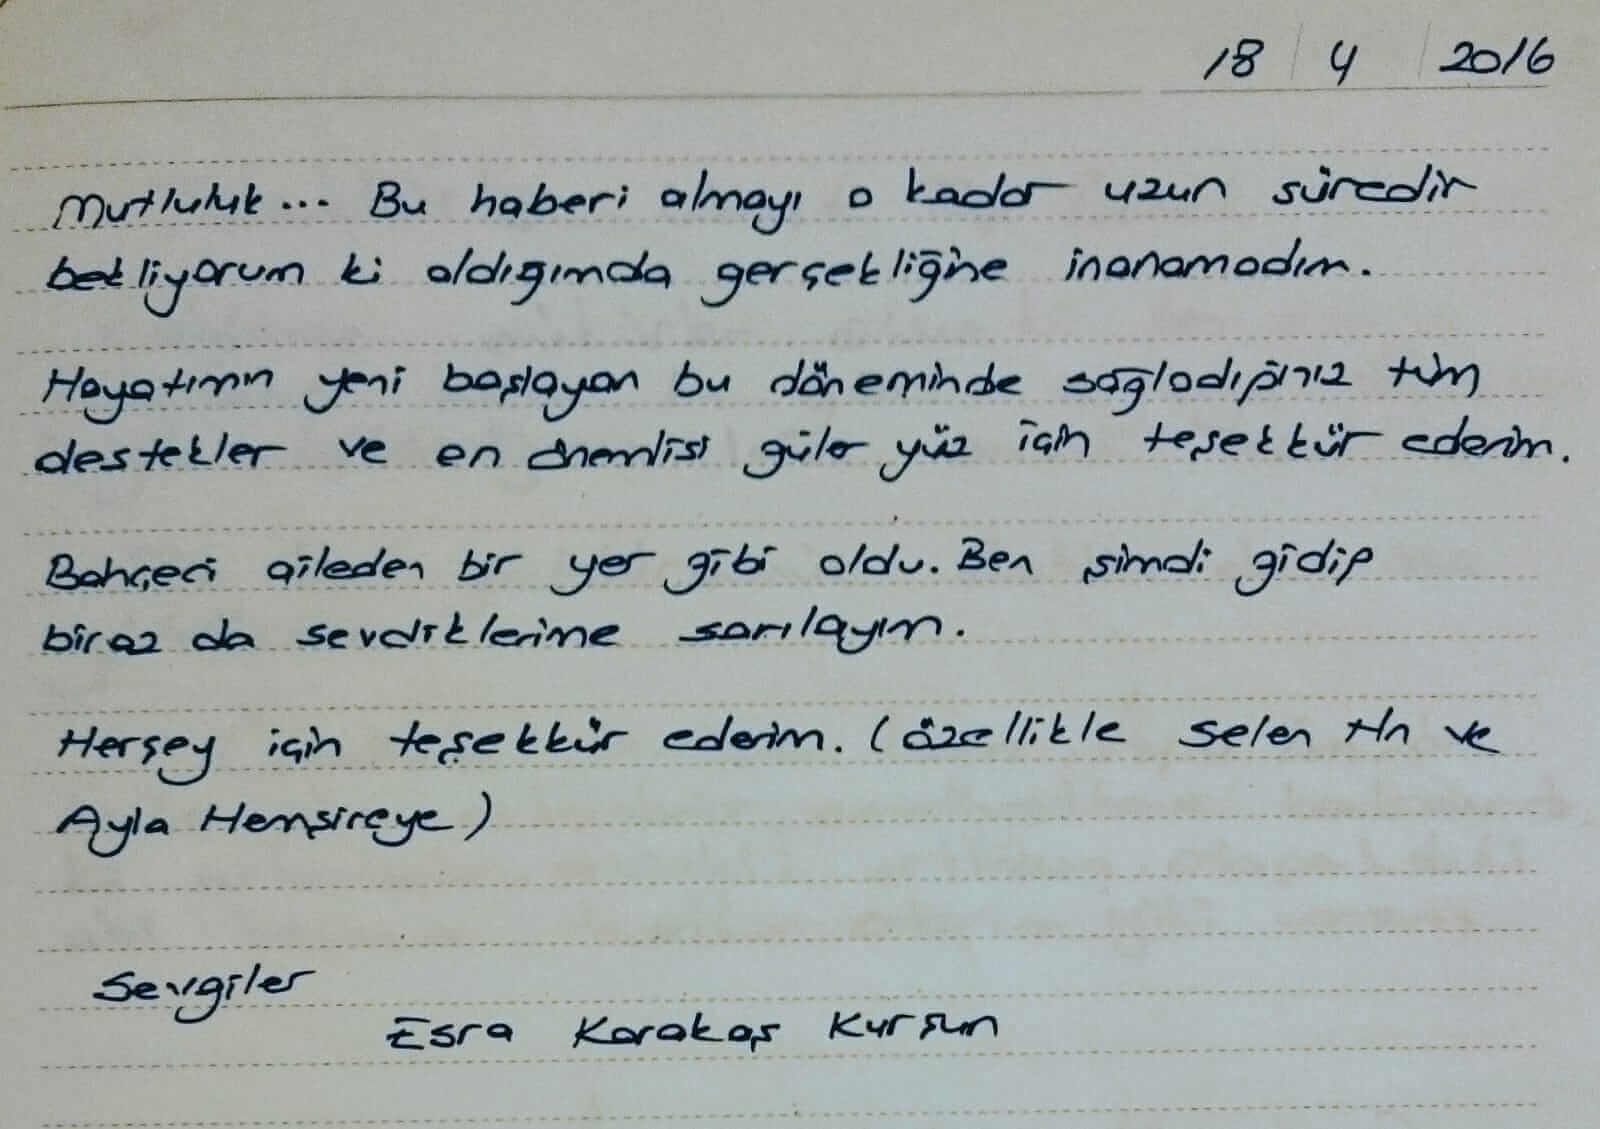 18 4 2016
Mutluluk... Bu haberi almayı o kadar uzun süredir
bekliyorum ki aldığımda gerçekliğine inanamadım.
Hayatımın yeni başlayan bu döneminde sağladığınız tüm
destekler ve en önemlisi güler yüz için teşekkür ederim.
Bahçeci aileden bir yer gibi oldu. Ben şimdi gidip
biraz da sevdiklerime sarılayım.
Herşey için teşekkür ederim. (özellikle Selen Hn ve
Ayla Hemşireye)
Sevgiler
Esra Karakaş Kurşun